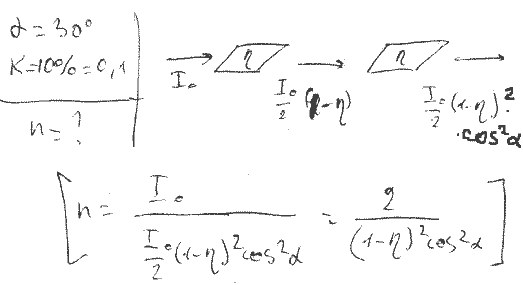 α = 30°
K=10%=0,1
n = ?
I₀
η
I₀/2 (1-η)
η
I₀/2 (1-η)² · cos²α
[n = I₀ / (I₀/2 · (1-η)² cos²α) = 2 / ((1-η)² cos²α)]